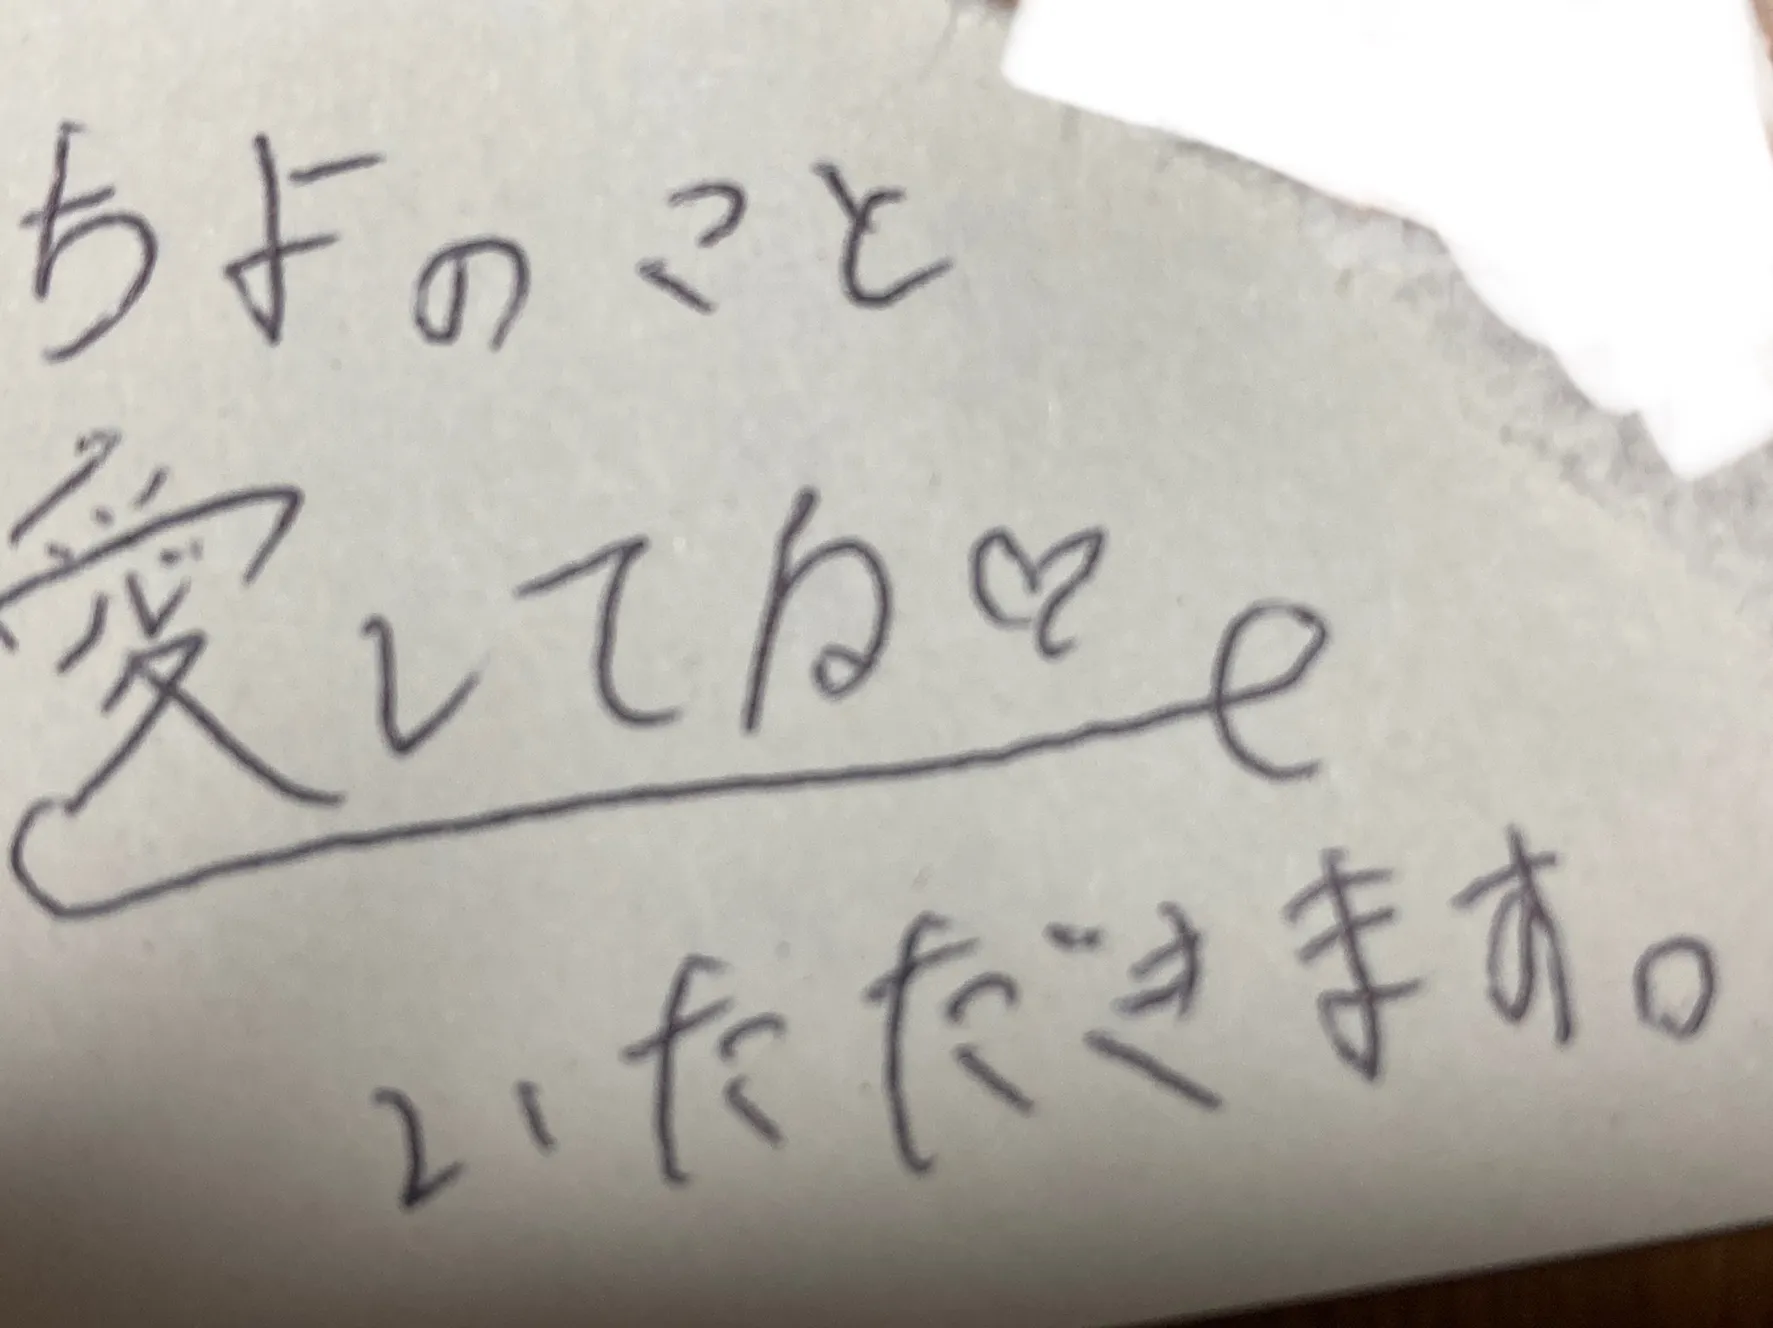 ちよのこと
愛してね♡
いただきます。